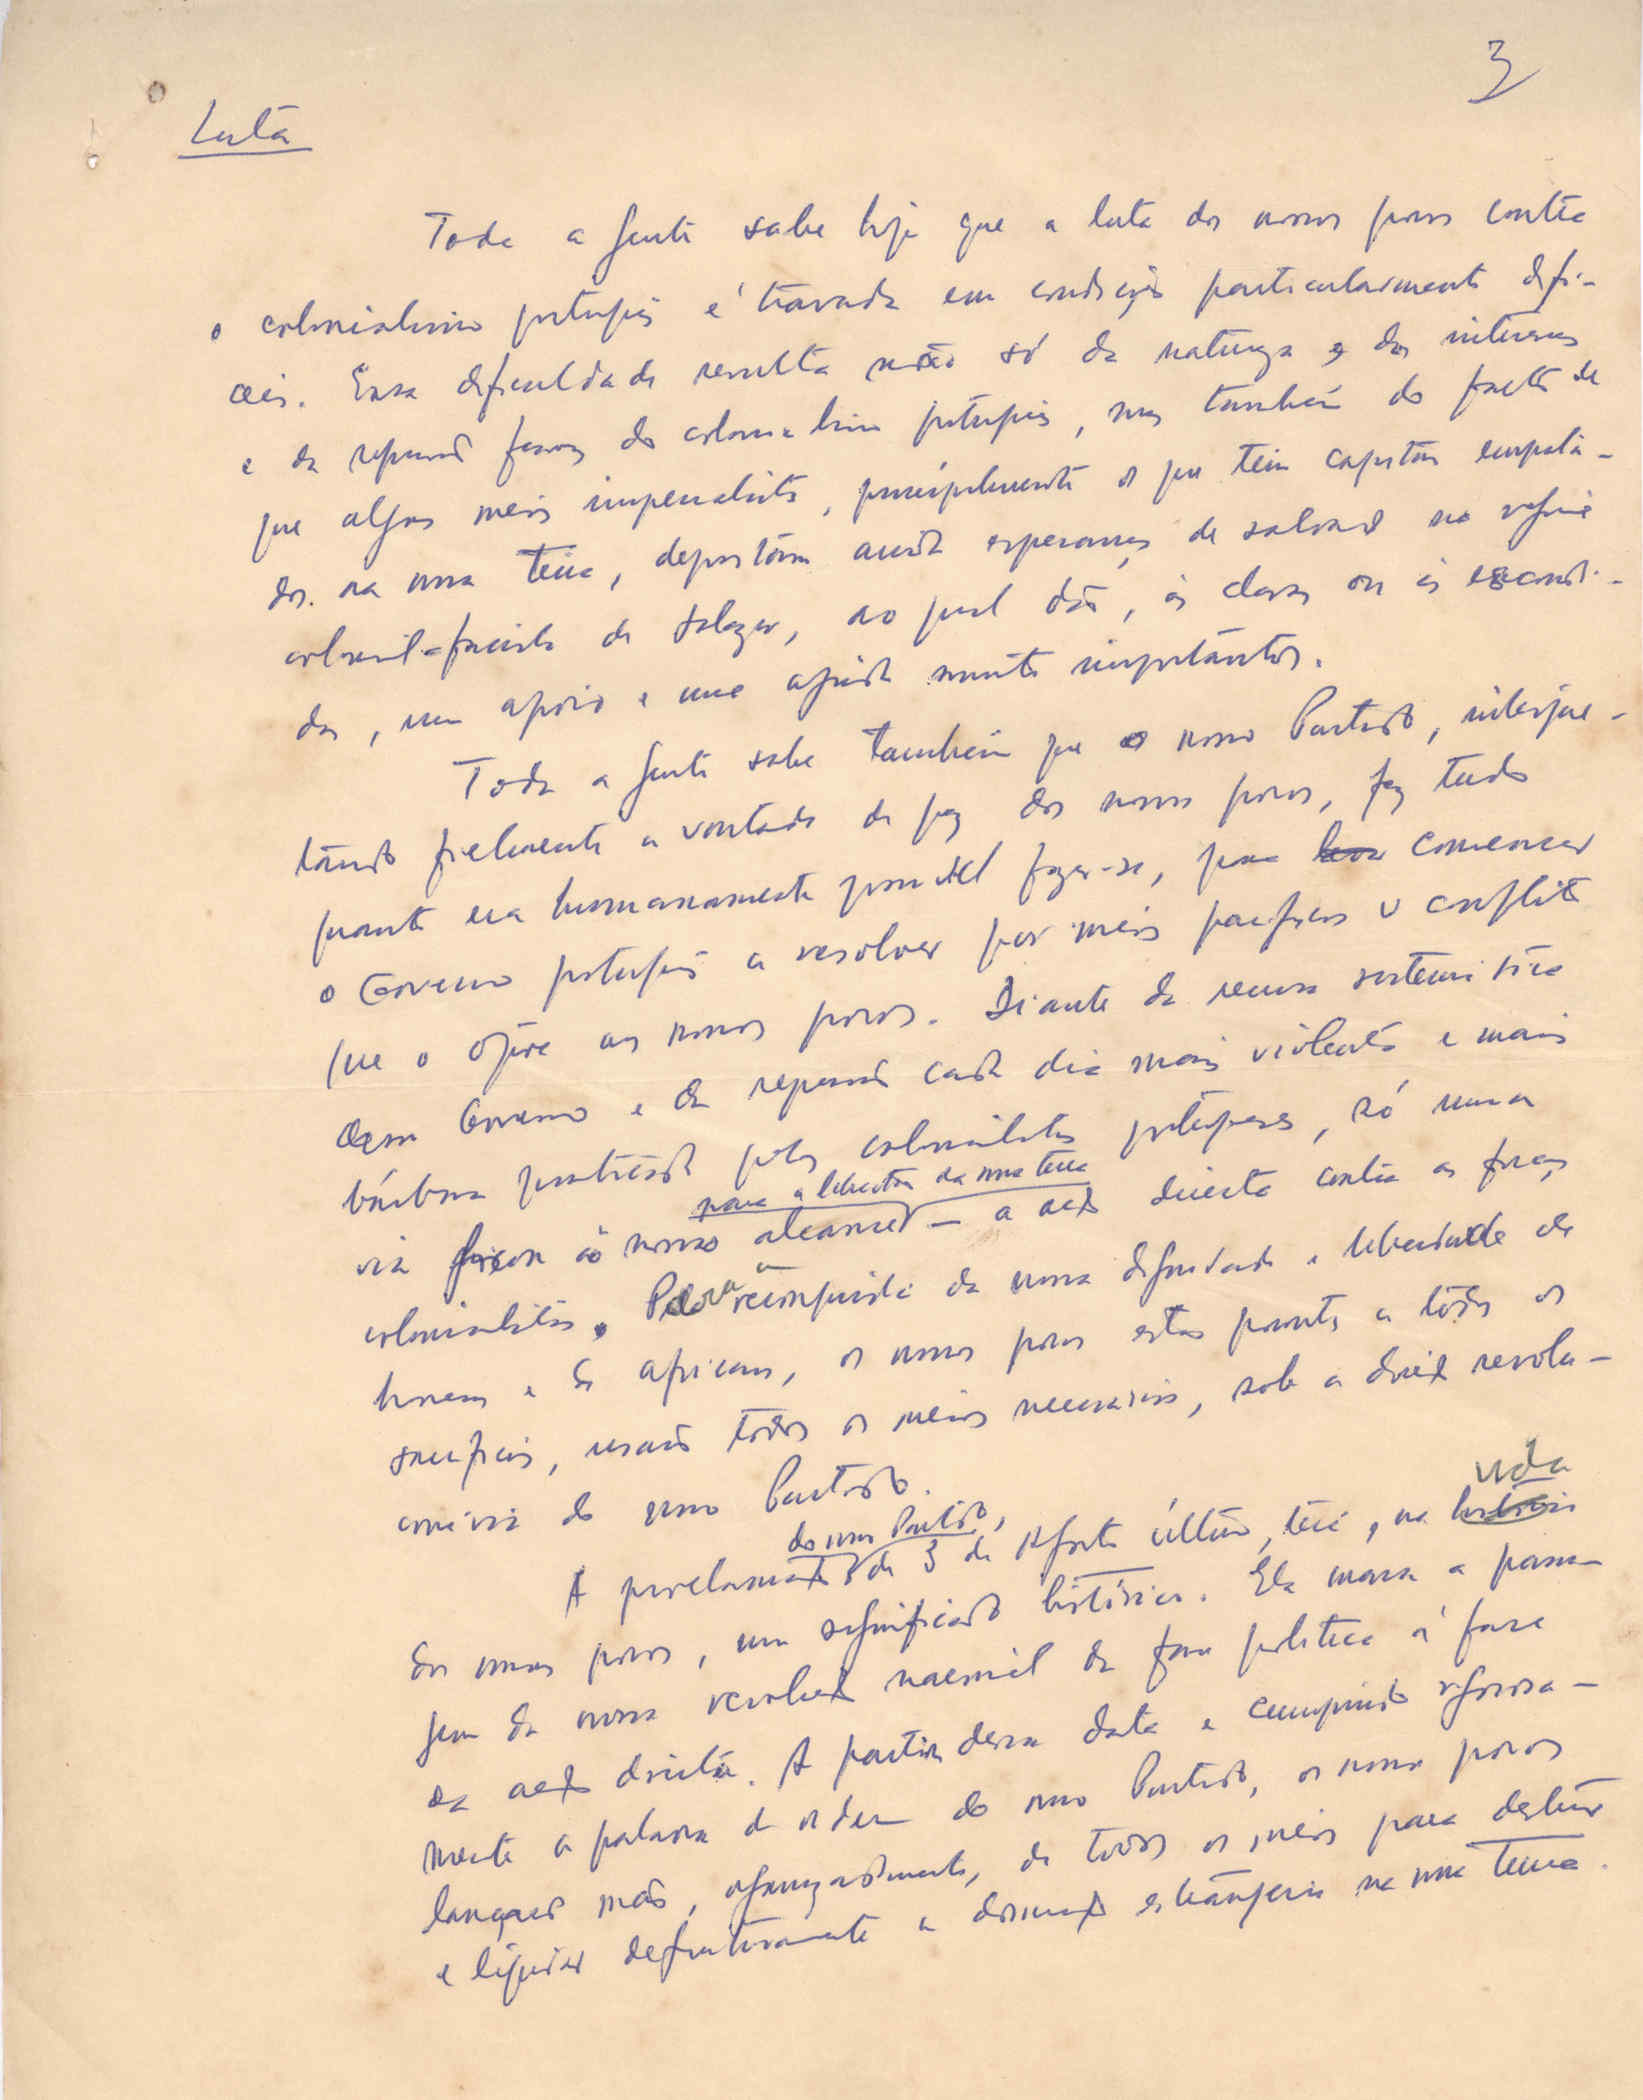 3
Luta
Toda a gente sabe hoje que a luta dos nossos povos contra
o colonialismo português é travada em condições particularmente difí-
ceis. Essa dificuldade resulta não só da natureza e dos interesses
e da repressão feroz do colonialismo português, mas também do facto de
que alguns meios imperialistas, principalmente os que têm capitais empata-
dos na nossa terra, depositam ainda esperanças de salvação no regime
colonial-fascista de Salazar, ao qual dão, às claras ou às escondi-
das, um apoio e uma ajuda muito importantes.
Toda a gente sabe também que o nosso Partido, interpre-
tando fielmente a vontade de paz dos nossos povos, fez tudo
quanto era humanamente possível fazer-se, para convencer
o Governo português a resolver por meios pacíficos o conflito
que o opõe aos nossos povos. Diante da recusa sistemática
desse Governo e da repressão cada dia mais violenta e mais
bárbara praticada pelos colonialistas portugueses, só uma
para a libertação da nossa terra
via ficou ao nosso alcance — a acção directa contra as forças
colonialistas. Para a reconquista da nossa dignidade e liberdade de
homens e de africanos, os nossos povos estão prontos a todos os
sacrifícios, usando todos os meios necessários, sob a direcção revolu-
cionária do nosso Partido.
vida
do nosso Partido,
A proclamação de 3 de Agosto último, terá, na história
dos nossos povos, um significado histórico. Ela marca a passa-
gem da nossa revolução nacional da fase política à fase
da acção directa. A partir dessa data e cumprindo rigorosa-
mente a palavra de ordem do nosso Partido, os nossos povos
lançarão mão, organizadamente, de todos os meios para destruir
e liquidar definitivamente a dominação estrangeira na nossa terra.